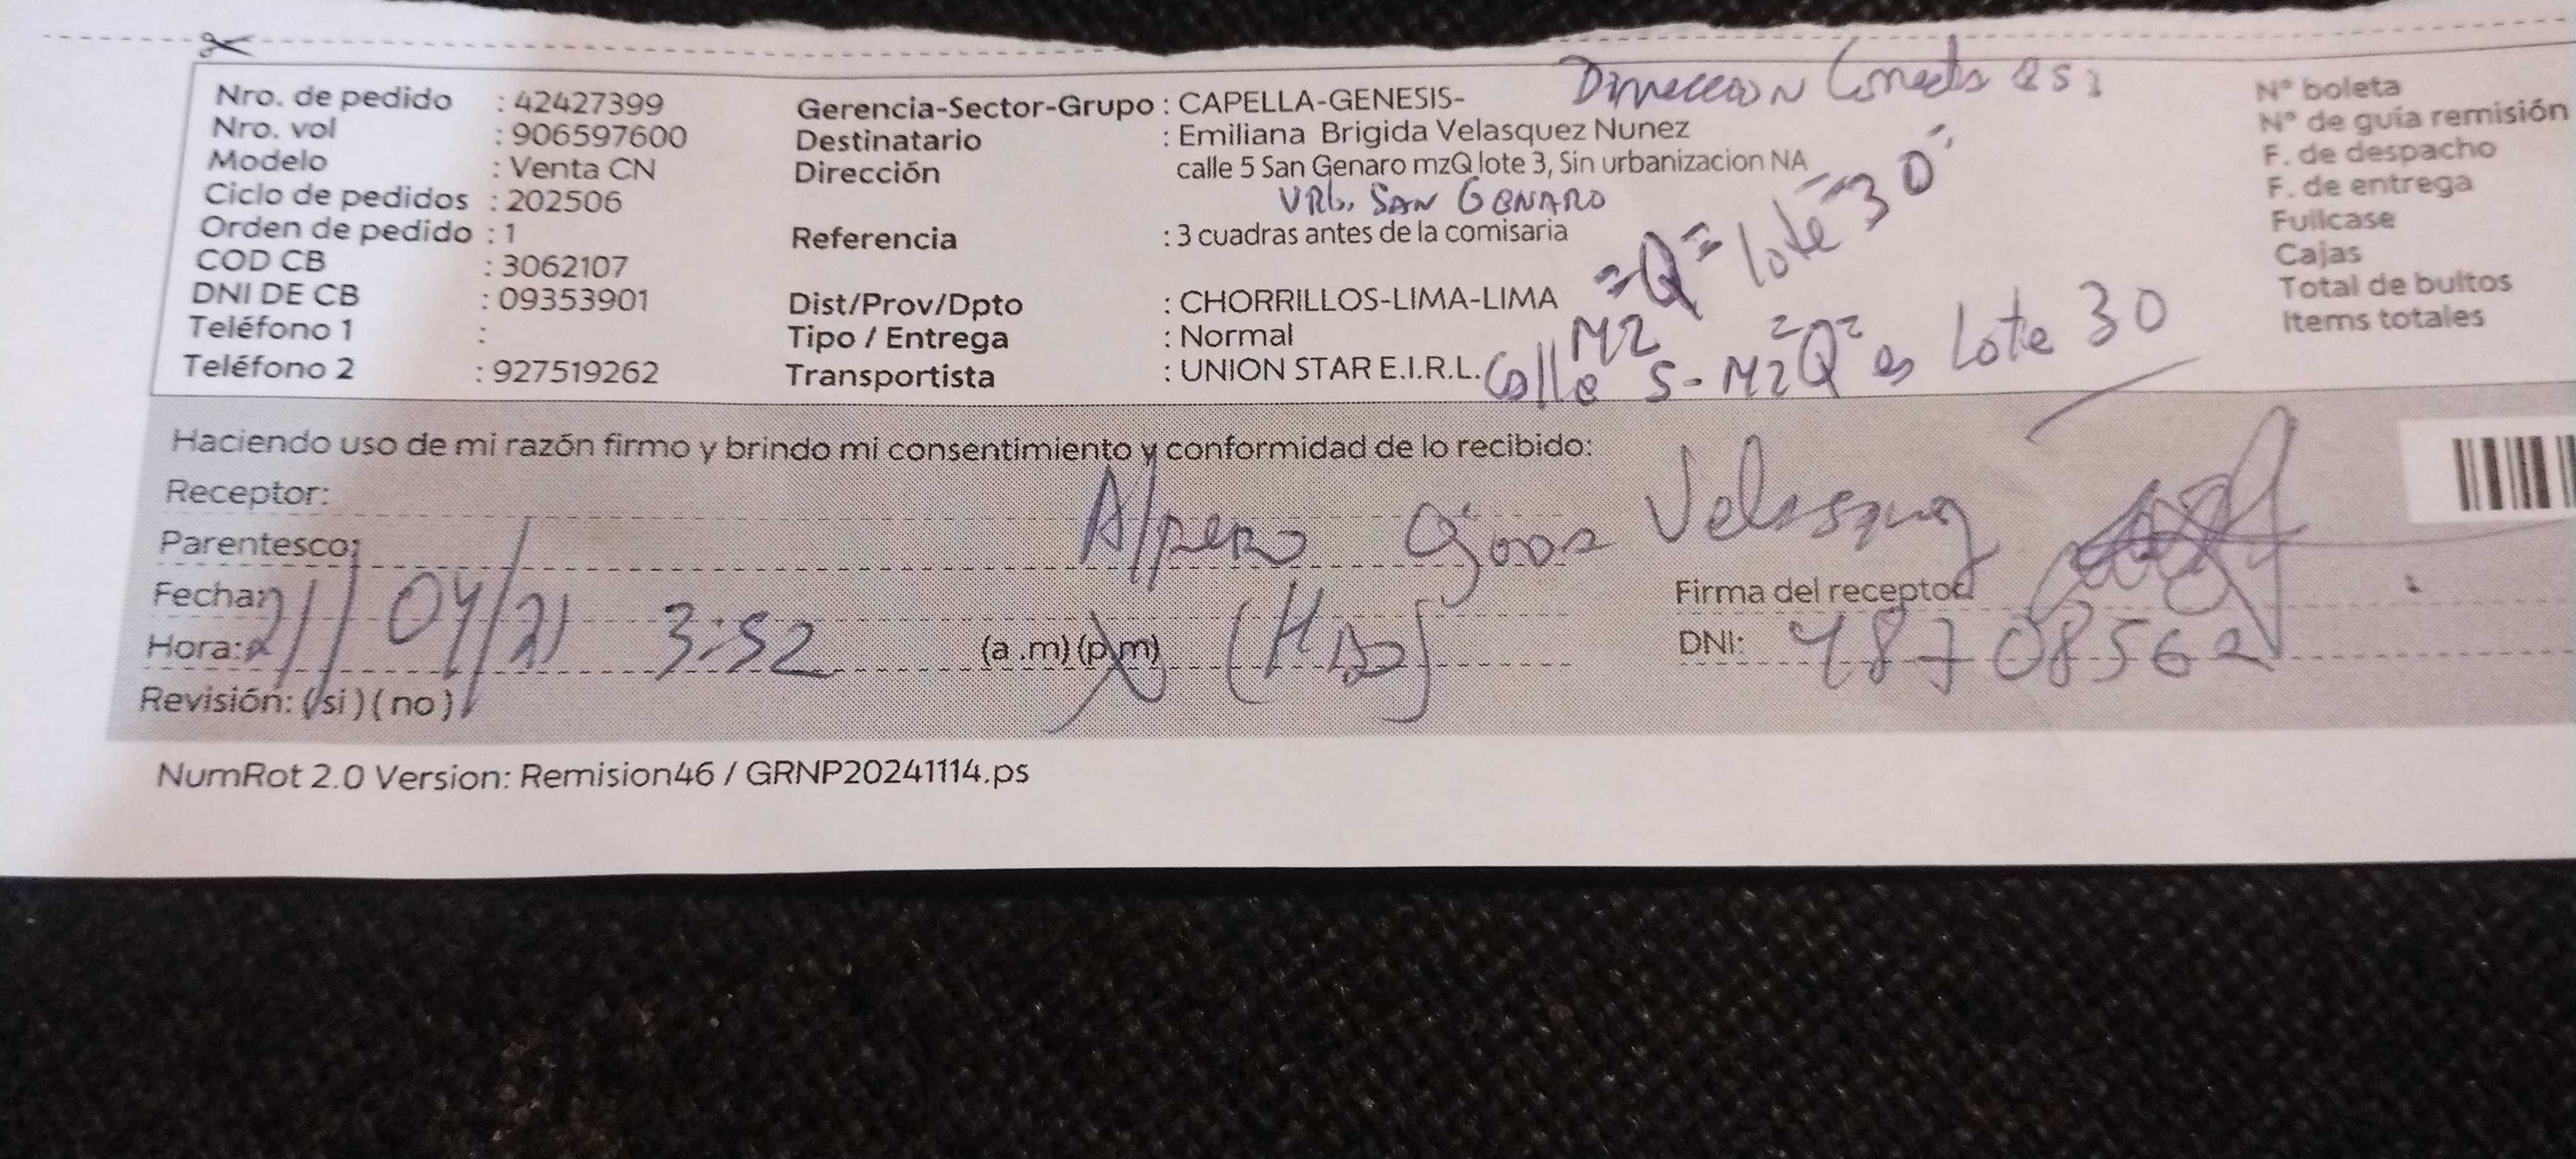 Nro. de pedido : 42427399
Nro. vol : 906597600
Modelo : Venta CN
Ciclo de pedidos : 202506
Orden de pedido : 1
COD CB : 3062107
DNI DE CB : 09353901
Teléfono 1 :
Teléfono 2 : 927519262
Gerencia-Sector-Grupo : CAPELLA-GENESIS-
Destinatario : Emiliana Brigida Velasquez Nunez
Dirección calle 5 San Genaro mzQ lote 3, Sin urbanizacion NA
URb. SAN GENARO
Referencia : 3 cuadras antes de la comisaria
Dist/Prov/Dpto : CHORRILLOS-LIMA-LIMA
Tipo / Entrega : Normal
Transportista : UNION STAR E.I.R.L.
Direccion Correcta es:
MZ "Q" lote "30"
Calle 5 - MZ "Q" es Lote 30
N° boleta
N° de guía remisión
F. de despacho
F. de entrega
Fullcase
Cajas
Total de bultos
Items totales
Haciendo uso de mi razón firmo y brindo mi consentimiento y conformidad de lo recibido:
Receptor:
Velasquez
Parentesco:
Fecha: 21/04/21 3:52
Firma del receptor
Hora: (a.m) (p.m)
DNI: 48708562
Revisión: (si) (no)
NumRot 2.0 Version: Remision46 / GRNP20241114.ps